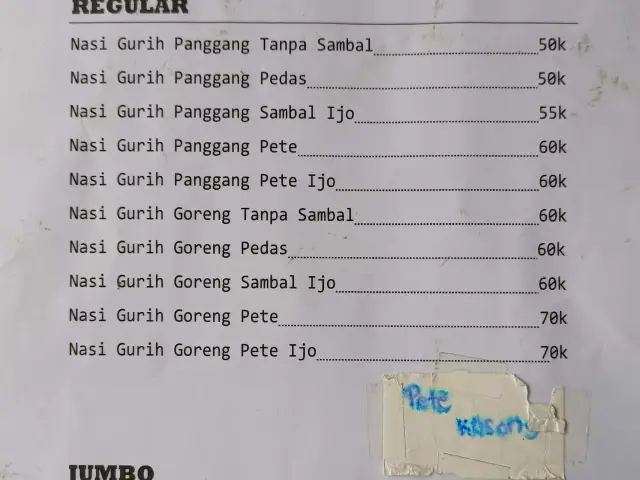 REGULAR
Nasi Gurih Panggang Tanpa Sambal 50k
Nasi Gurih Panggang Pedas 50k
Nasi Gurih Panggang Sambal Ijo 55k
Nasi Gurih Panggang Pete 60k
Nasi Gurih Panggang Pete Ijo 60k
Nasi Gurih Goreng Tanpa Sambal 60k
Nasi Gurih Goreng Pedas 60k
Nasi Gurih Goreng Sambal Ijo 60k
Nasi Gurih Goreng Pete 70k
Nasi Gurih Goreng Pete Ijo 70k
Pete
Kosong
JUMBO